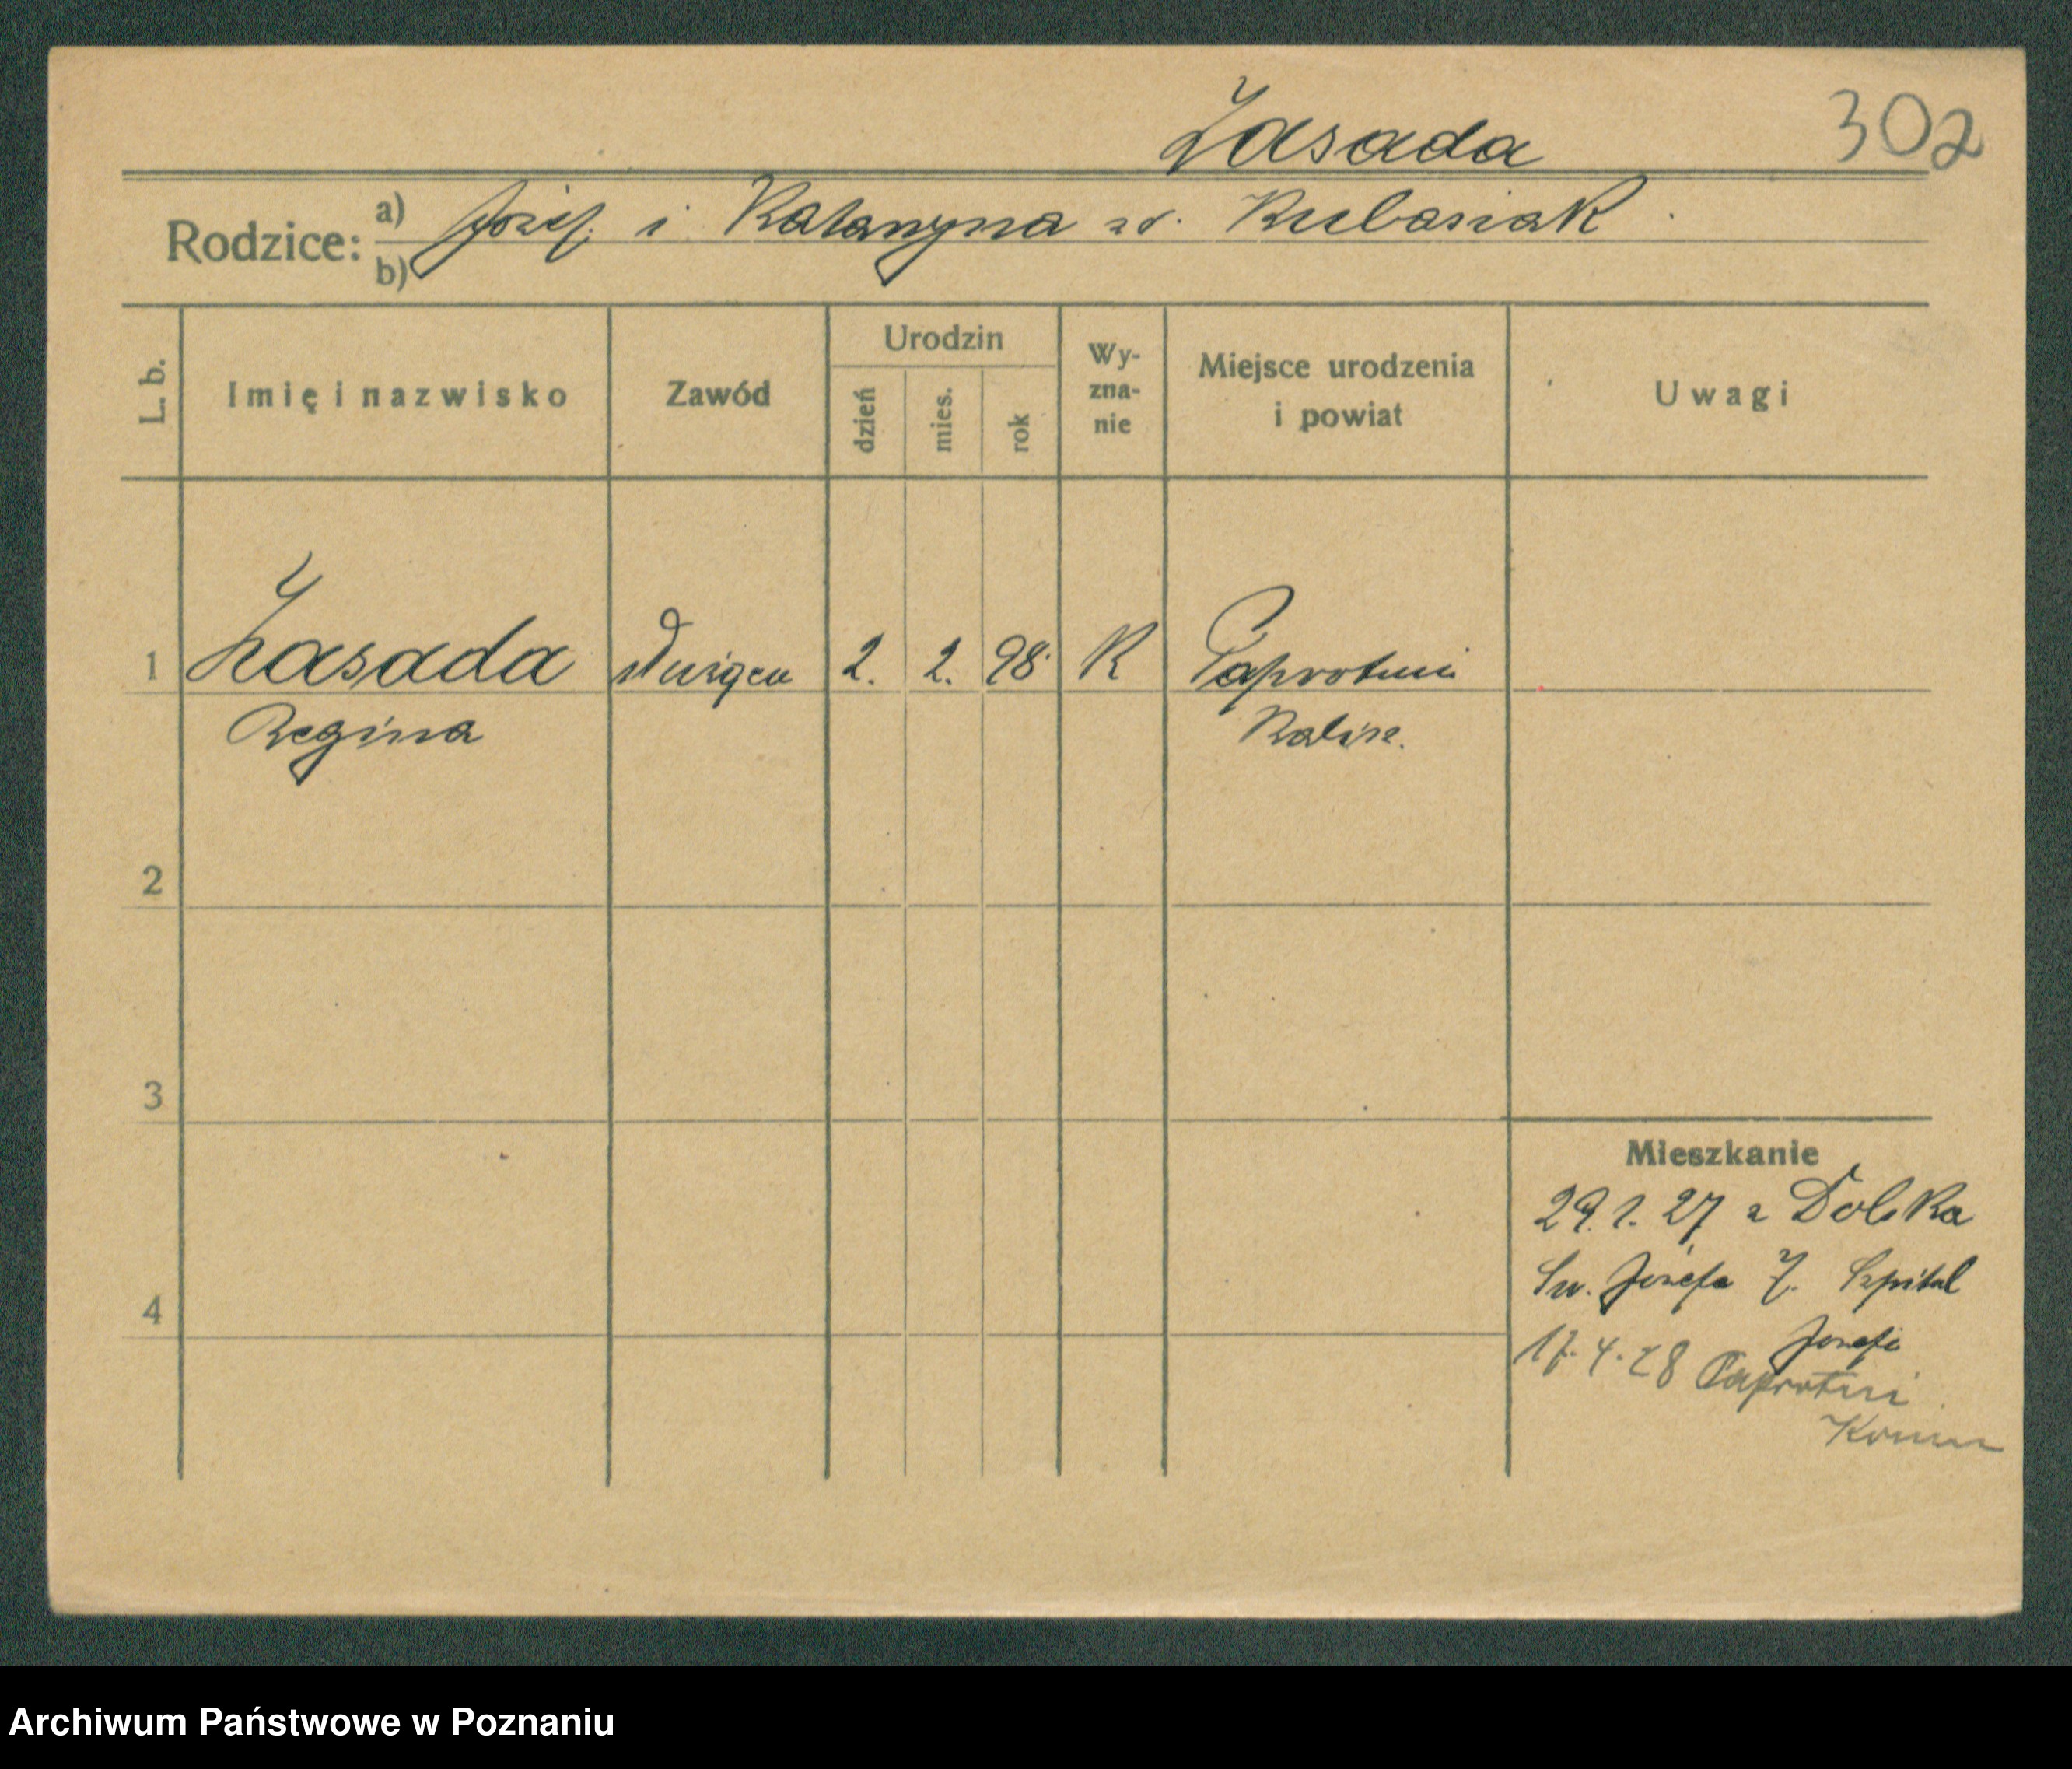 Zasada
302
Rodzice: a) Józef. i Katarzyna zd. Kubasiak
b)
L. b.
Imię i nazwisko
Zawód
Urodzin
dzień
mies.
rok
Wy-
zna-
nie
Miejsce urodzenia
i powiat
Uwagi
1 Zasada 2. 2. 98 K Paprotnia
Regina Kalisz.
2
3
4
Mieszkanie
29. 1. 27 z Dolska
Św. Józefa 7. Szpital
Józefa
17. 4. 28 Paprotnia
Archiwum Państwowe w Poznaniu